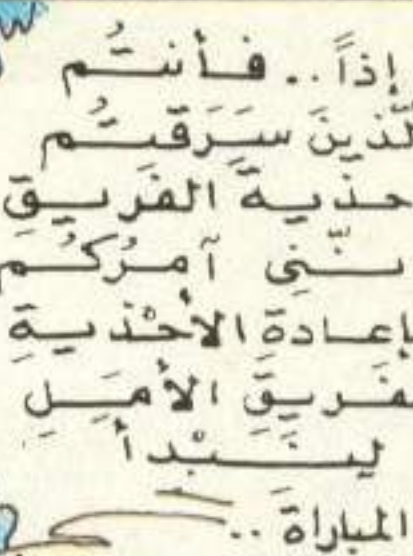 إذاً.. فأنتُم
لّذينَ سَرَقتُم
حذيةَ الفَريقِ
نّني آمرُكُم
بإعادةِ الأحْذيةِ
لفَريقِ الأمَلِ
ليَبْدأ
المباراةَ..